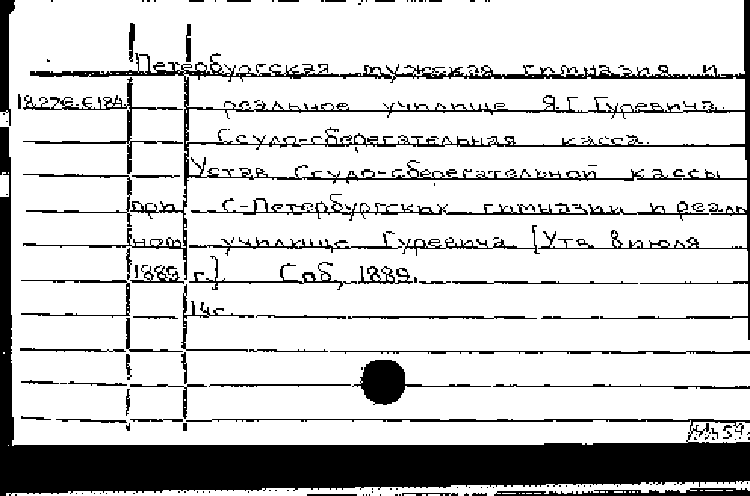 Петербургская мужская гимназия и
18.276.6.184 реальное училище Я.Г. Гуревича.
Ссудо-сберегательная касса.
Устав Ссудо-сберегательной кассы
при С-Петербургских гимназии и реаль
ном училище Гуревича [Утв. 8 июля
1889 г.] Спб, 1889.
14с.